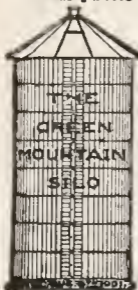 THE
GREEN
MOUNTAIN
SILO